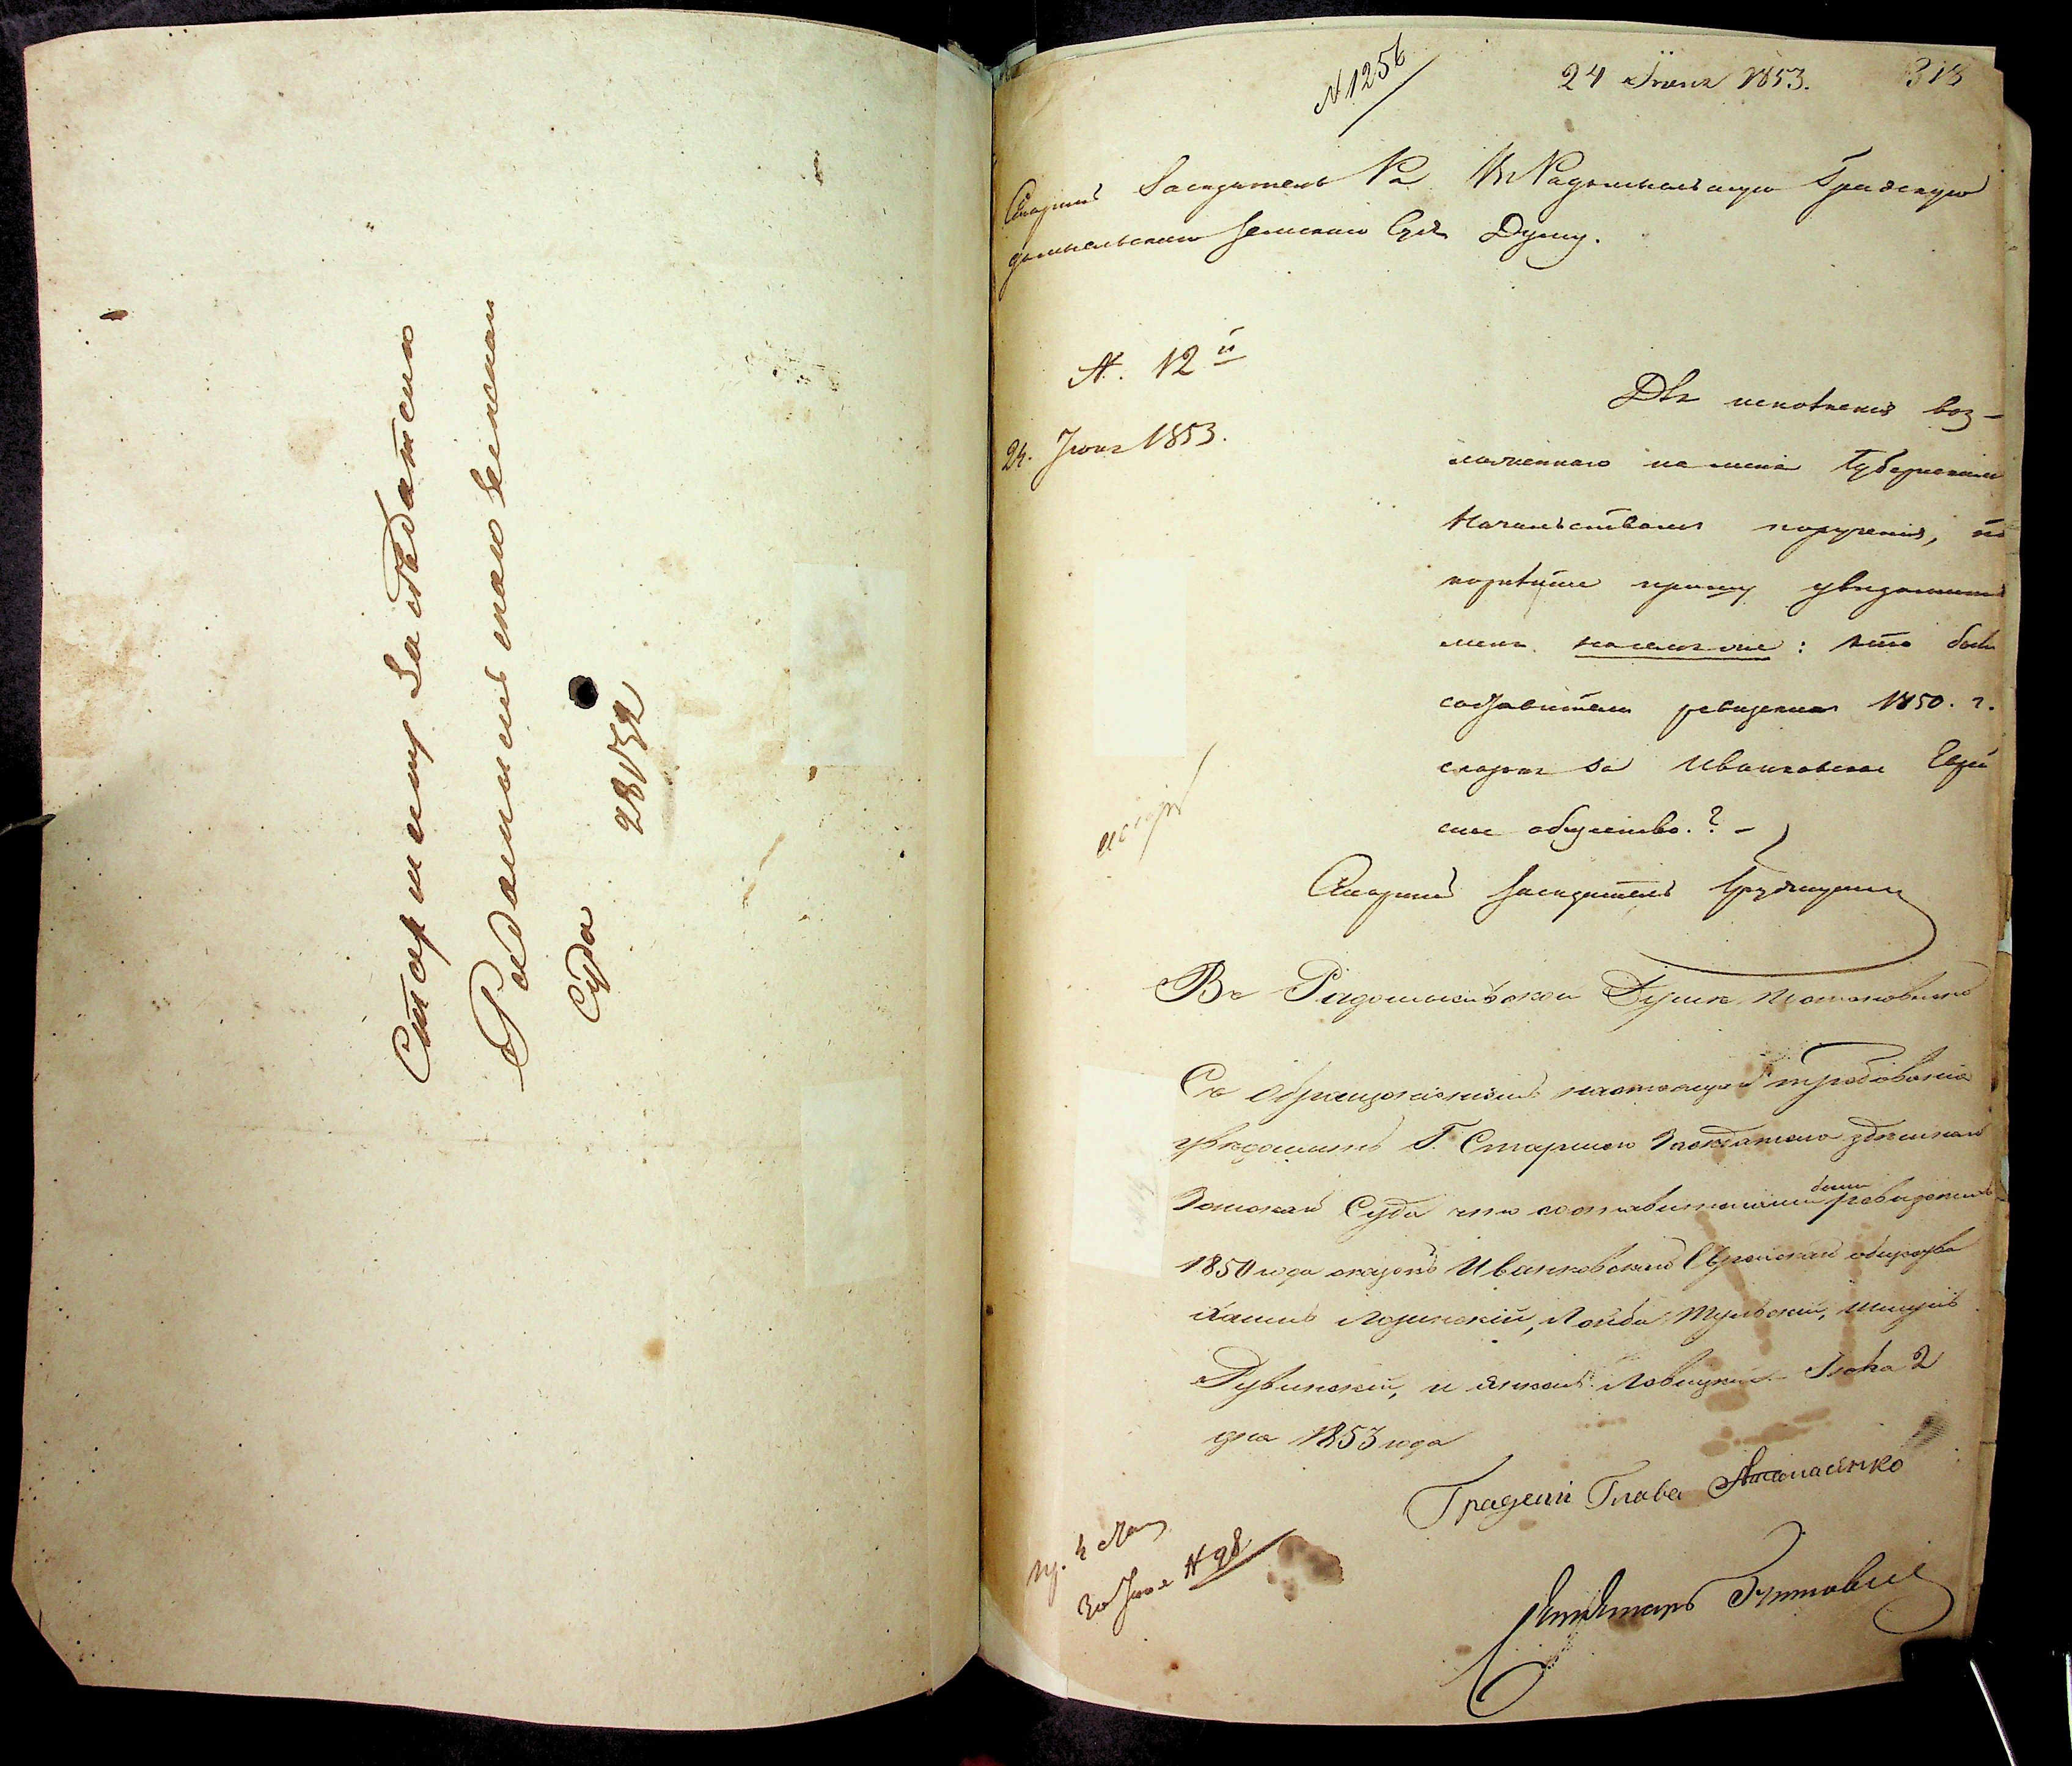 Старшему Засѣдателю
Радомысльскаго Земскаго
Суда
N 1256
24 Іюня 1853.
318
Старшій Засѣдатель Ра
домысльскаго Земскаго Суда
Въ Радомысльскую Градскую
Думу.
N. 12й
24. Іюня 1853.
Для исполненія воз-
ложеннаго на меня Губернскимъ
Начальствомъ порученія, по
корнѣйше прошу увѣдомить
меня на семъ же: кто были
составители ревизскихъ 1850. г.
сказокъ за Иванковское Еврей
ское общество.? –
Старшій Засѣдатель
Въ Радомысльской Думѣ Постановлено
Съ обращеніемъ настоящаго требованія
увѣдомить Г. Старшаго Засѣдателя здѣшняго
Земскаго Суда что составителями были ревизскихъ
1850 года сказокъ Иванковскаго Еврейскаго общества
Хаимъ Лозинскій, Лейба Тульскій,
Дувинскій, и Янкель Іюля 2
дня 1853 года
Градскій Глава Афанасенко
Секретарь
30 Іюня N 98